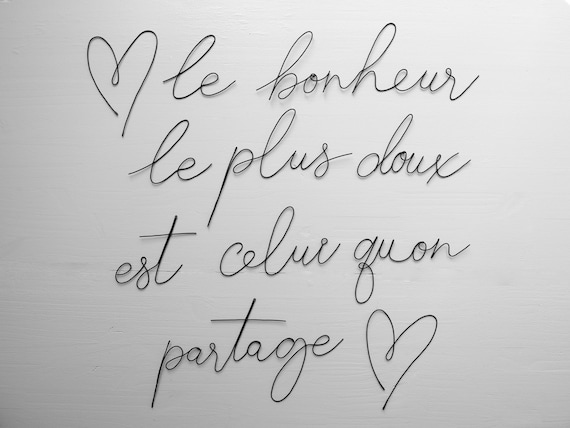 le bonheur
le plus doux
est celui quon
partage